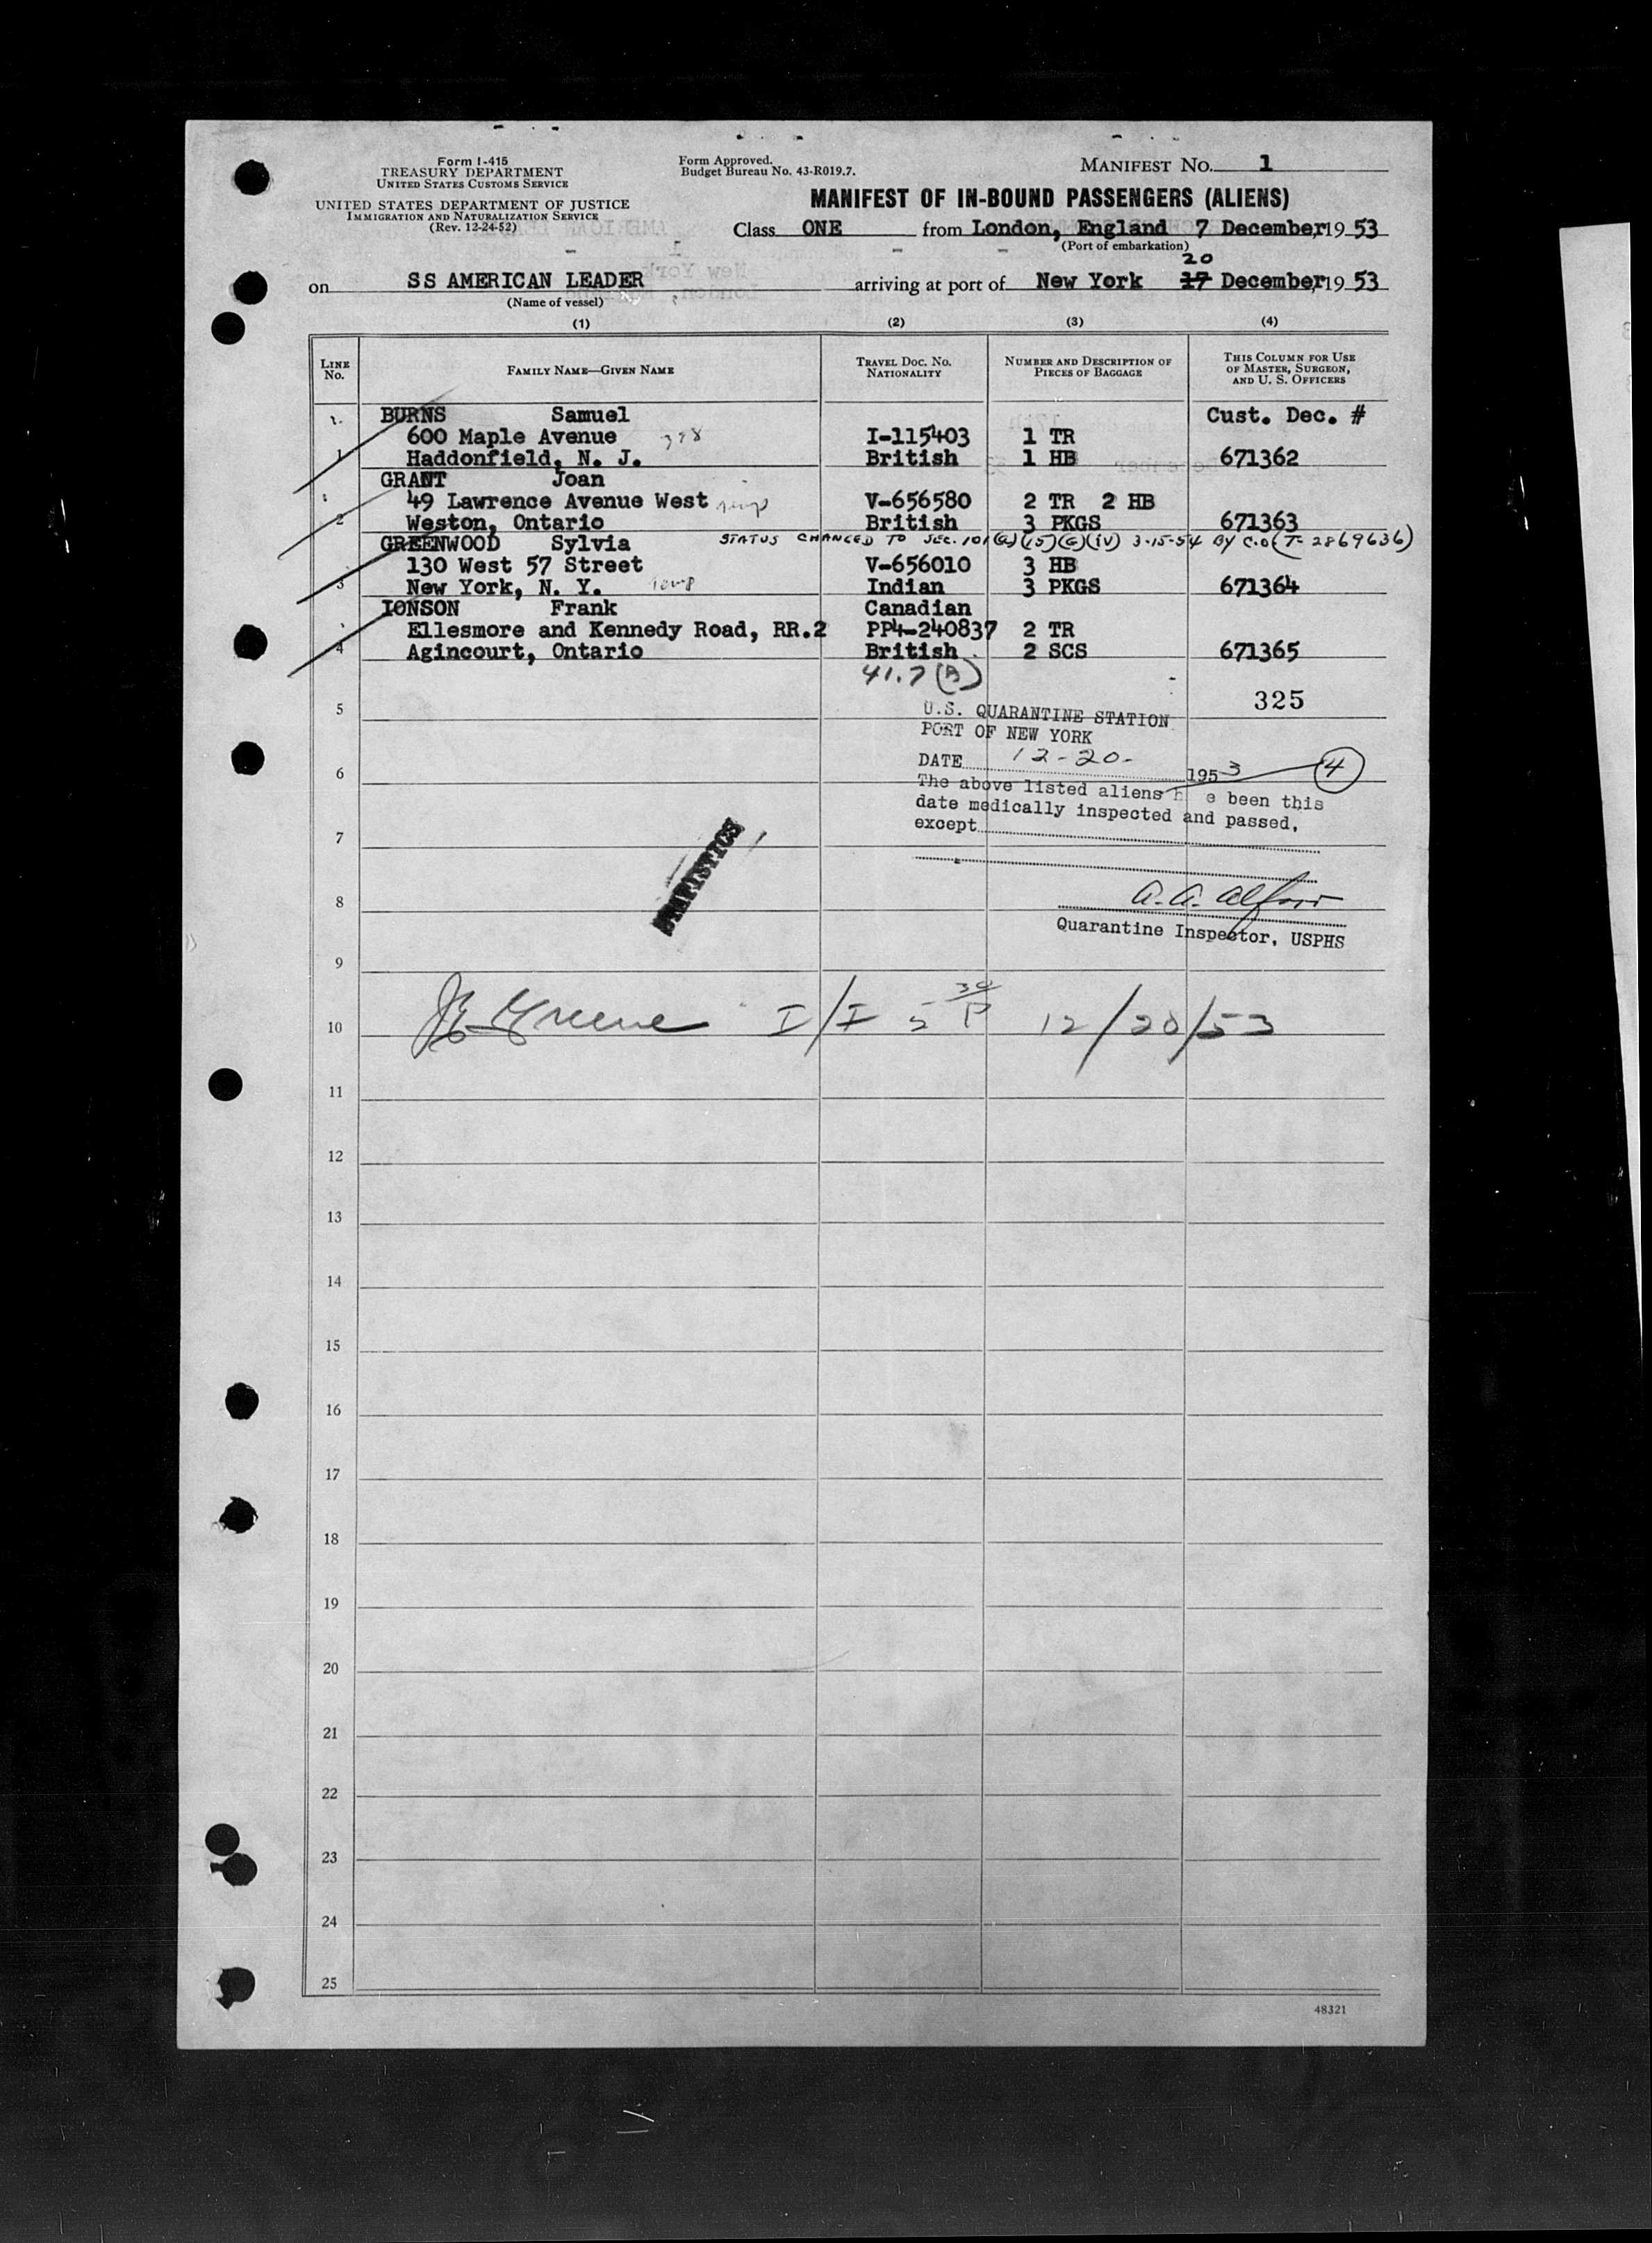 Form I-415
TREASURY DEPARTMENT
UNITED STATES CUSTOMS SERVICE
UNITED STATES DEPARTMENT OF JUSTICE
IMMIGRATION AND NATURALIZATION SERVICE
(Rev. 12-24-52)
Form Approved.
Budget Bureau No. 43-R019.7.
MANIFEST NO. 1
MANIFEST OF IN-BOUND PASSENGERS (ALIENS)
Class ONE from London, England 7 December, 1953
(Port of embarkation)
20
on SS AMERICAN LEADER arriving at port of New York 17 December, 1953
(Name of vessel)
(1) (2) (3) (4)
LINE No. FAMILY NAME—GIVEN NAME TRAVEL DOC. NO. NATIONALITY NUMBER AND DESCRIPTION OF PIECES OF BAGGAGE THIS COLUMN FOR USE OF MASTER, SURGEON, AND U. S. OFFICERS
1. BURNS Samuel Cust. Dec. #
600 Maple Avenue I-115403 1 TR
1 Haddonfield, N. J. British 1 HB 671362
GRANT Joan
49 Lawrence Avenue West V-656580 2 TR 2 HB
2 Weston, Ontario British 3 PKGS 671363
GREENWOOD Sylvia STATUS CHANGED TO SEC. 101(a)(15)(G)(iv) 3-15-54 BY C.O (T-2869636)
130 West 57 Street V-656010 3 HB
3 New York, N. Y. Temp Indian 3 PKGS 671364
IONSON Frank Canadian
Ellesmore and Kennedy Road, RR.2 PP4-240837 2 TR
4 Agincourt, Ontario British 2 SCS 671365
41.7 (B)
5 325
U.S. QUARANTINE STATION
PORT OF NEW YORK
6 DATE 12-20- 1953 4
The above listed aliens h e been this
date medically inspected and passed,
7 except
STATISTICS
8 A. A. Alford
Quarantine Inspector, USPHS
9
10 Greene I/I 5 30 P 12/20/53
11
12
13
14
15
16
17
18
19
20
21
22
23
24
25
48321